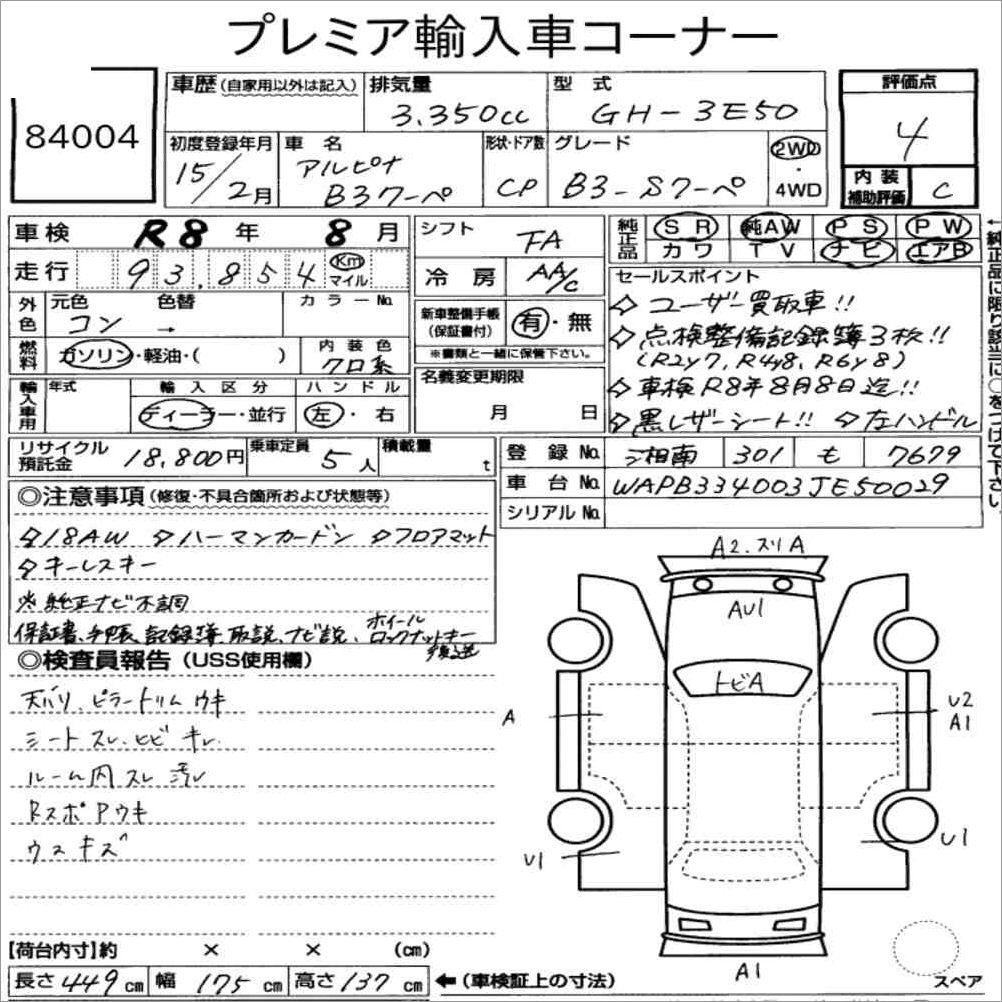 プレミア輸入車コーナー
84004
車歴 (自家用以外は記入)
排気量
3.350cc
型式
GH-3E50
評価点
4
初度登録年月
15/2月
車名
アルピナ
B3クーペ
形状・ドア数
CP
グレード
B3-Sクーペ
2WD
・
4WD
内装
補助評価
C
車検 R8年 8月
走行 93,854 Km マイル
外色 元色 色替 カラーNo.
コン →
燃料 ガソリン・軽油・( )
内装色
クロ系
輸入車用 年式
輸入区分
ディーラー・並行
ハンドル
左・右
シフト FA
冷房 AA/C
新車整備手帳
(保証書付)
有・無
※書類と一緒に保管下さい。
名義変更期限
月 日
純正品 SR 純AW PS PW
カワ TV ナビ エアB
←純正品に限り該当に○をつけて下さい。
セールスポイント
☆ユーザー買取車!!
☆点検整備記録簿3枚!!
(R2y7, R4y8, R6y8)
☆車検R8年8月8日迄!!
☆黒レザーシート!! ☆左ハンドル
リサイクル
預託金
18,800円
乗車定員
5人
積載量
t
登録No. 湘南 301 も 7679
車台No. WAPB334003JE50029
シリアルNo.
◎注意事項 (修復・不具合箇所および状態等)
☆18AW ☆ハーマンカードン ☆フロアマット
☆キーレスキー
※純正ナビ不調
保証書、手帳、記録簿、取説、ナビ説、ホイールロックナットキー
後送
◎検査員報告 (USS使用欄)
天バリ、ピラートリム ウキ
シート スレ、ヒビ キレ
ルーム内 スレ 汚レ
RスポPウキ
ウスキズ
A2.スリA
AU1
トビA
A
U2
A1
U1
U1
A1
スペア
【荷台内寸】約 × × (cm)
長さ 449cm 幅 175cm 高さ 137cm ←(車検証上の寸法)